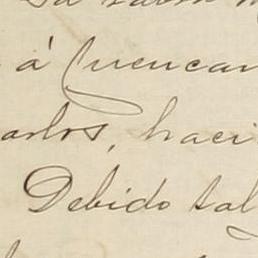 á Cuencan
arlos, haci
Debido tal